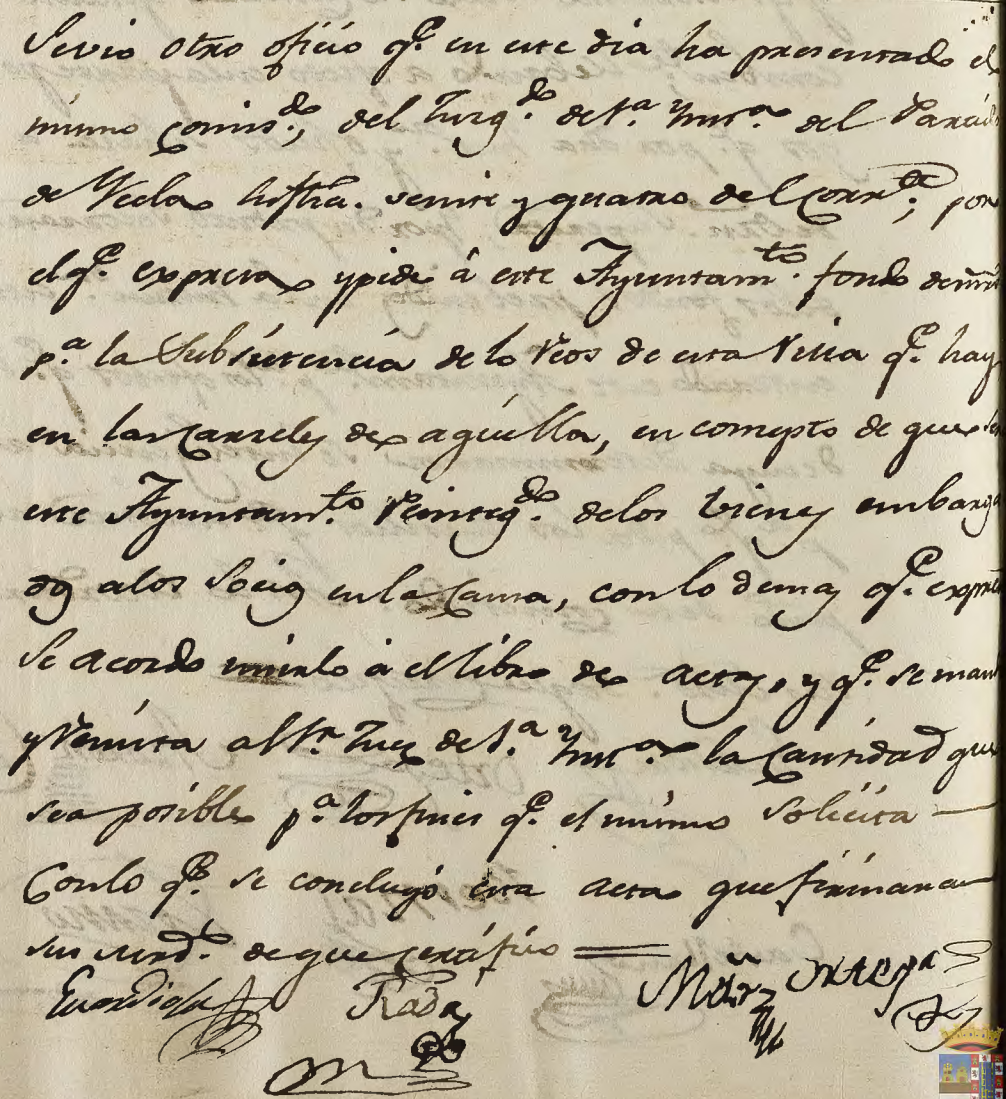 Se vio otro oficio q.e en este dia ha presentado el
mismo comis.do, del Juzg.do de 1.a Ynst.a del Partid
de Yecla su fha. veinte y quatro del corr.te, por
el q.e expresa y pide á este Ayuntam.to fondo
p.a la Subsistencia de lo Reos de esta Villa q.e hay
en las Carceles de aquella, en concepto de que
este Ayuntam.to Reinteg.do de los bienes embarga
dos a los Socios en la Causa, con lo demas q.e expre
Se acordo unirlo á el libro de actas, y q.e se man
y Remita al S.r Juez de 1.a Ynst.a la Cantidad que
sea posible p.a los fines q.e el mismo Solicita
Con lo q.e se concluyó esta acta que firmaran
sus merd.s de que certifico
Guardiola Tada Mrnz Ortega